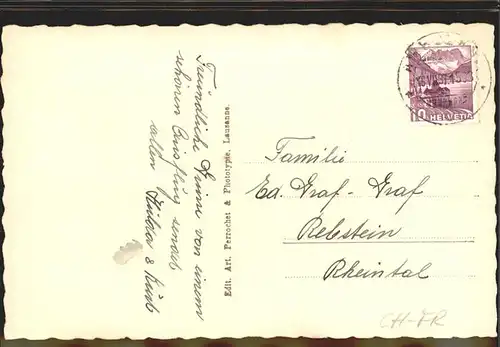 Freundliche Grüsse von einem
schönen Ausflug sendet
allen
Edit. Art. Perrochet & Phototypie, Lausanne.
10 HELVETIA
Familie
Ed. Graf-Graf
Rebstein
Rheintal
CH-FR